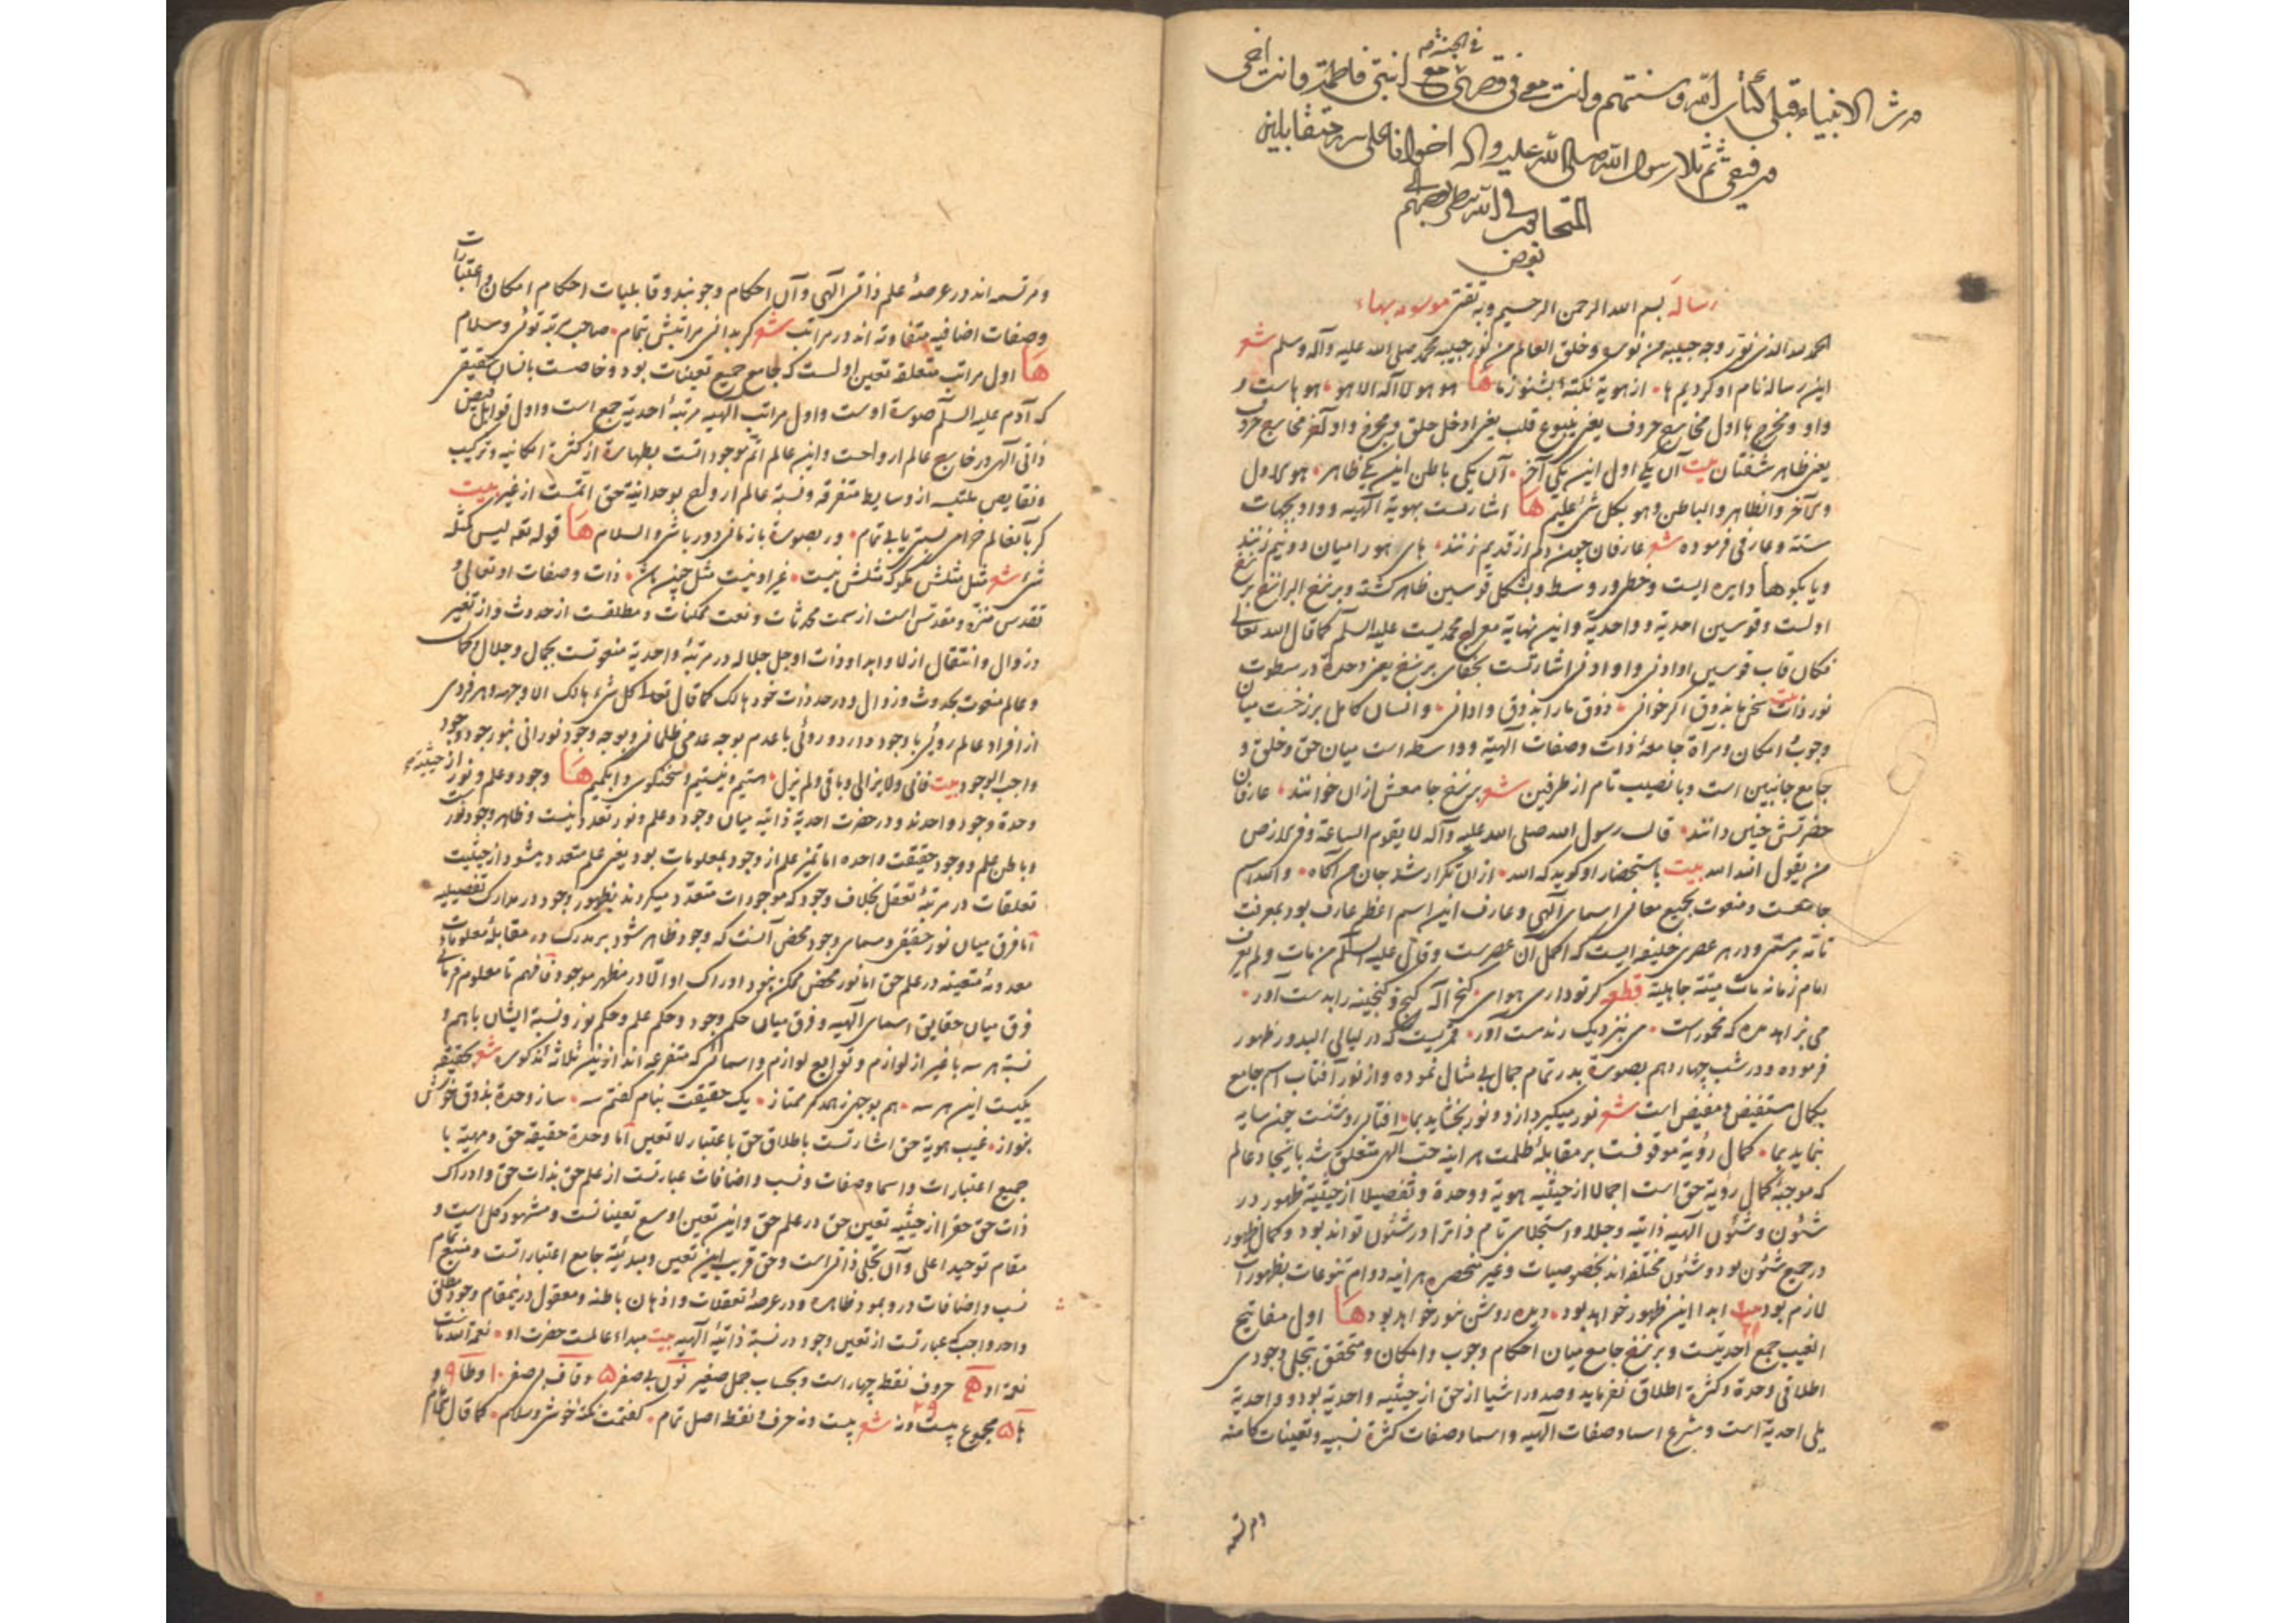 في الجنة
من الانبياء قبلی كتاب الله وسنتهم وانت معی فی قصری مع ابنتی فاطمة وانت اخی
ورفیقی ثم تلا رسول الله صلی الله علیه واله اخوانا علی سرر متقابلین
المتحابین فی الله ینظر بعضهم
بعض
رساله بسم الله الرحمن الرحیم وبه ثقتی موسومه بهاء
الحمد لله الذی نور وجه حبیبه من نوره وخلق العالم من نور حبیبه محمد صلی الله علیه وآله وسلم شعر
این رساله نام او کردیم ها • از هویة نکتهٔ بشنو ز ما ها هو هو لا اله الا هو • هو هاست و
واو و مخرج ها اول مخارج حروف یعنی ینبوع قلب یعنی ادخل حلق و مخرج واو آخر مخارج حروف
یعنی ظاهر شفتان بیت آن یکی اول این یکی آخر • آن یکی باطن این یکی ظاهر • هو الاول
والآخر والظاهر والباطن وهو بکل شیء علیم ها اشارتست بهویة الهیه و واو بجهات
سته و عارفی فرموده شعر عارفان چون دم از قدیم زنند • های هو را میان دو نیم زنند
و یا بگو ها دایره ایست و خطی در وسط و بشکل قوسین ظاهر گشته و برزخ البرازخ برزخ
اولست و قوسین احدیة و واحدیة و این نهایة معراج محمدیست علیه السلم کما قال الله تعالی
فکان قاب قوسین او ادنی و او ادنی اشارتست بخفای برزخ یعنی وحدة در سطوت
نور ذات بیت سخن ما بذوق اگر خوانی • ذوق ما را بذوق وادانی • و انسان کامل برزخست میان
وجوب و امکان و مرآة جامعهٔ ذات و صفات الهیه و واسطه است میان حق و خلق و
جامع جانبین است و با نصیب تام از طرفین شعر برزخ جامعش از آن خوانند • عارفان
حضرتش چنین دانند • قال رسول الله صلی الله علیه وآله لا یقوم الساعة وفی الارض
من یقول الله الله بیت باستحضار او گوید که الله • از آن تکرار شد جان من آگاه • و الله اسم
جامعست و منعوت بجمیع معانی اسمای الهی و عارف این اسم اعظم عارف بود بمعرفت
تامه برستمی و در هر عصری خلیفه ایست که اکمل آن عصرست و قال علیه السلم من مات ولم یعرف
امام زمانه مات میتة جاهلیة قطعه گر تو داری هوای گنج اله گنج و گنجینه را بدست آور •
می بزاهد مده که مخمور است • می بنزدیک رند مست آور • قمریست که در لیالی البدور ظهور
فرموده و در شب چهاردهم بصورة بدر تمام جمال بی مثال نموده و از نور آفتاب اسم جامع
بکمال مستفیض و مفیض است شعر نور میگیرد ازو و نور بخشاید بما • آفتابی روشنست چون سایه
بنماید بما • کمال رؤیة موقوفست بر مقابلهٔ ظلمت هر آینه حب الهی متعلق شد بایجاد عالم
که موجبهٔ کمال رؤیة حق است اجمالا از حیثیه هویة و وحدة و تفصیلا از حیثیة ظهور در
شئون و شئون الهیه ذاتیه و جلاء و استجلای تام ذاتی را در شئون تواند بود و کمال ظهور
در جمیع شئون بود و شئون مختلفه اند بخصوصیات و غیر منحصره هر آینه دوام تنوعات بظهورات
لازم بود بیت ابدا این ظهور خواهد بود • دیده روشن بنور خواهد بود ها اول مفاتیح
الغیب جمع احدیتست و برزخ جامع میان احکام وجوب و امکان و متحقق بتجلی وجودی
اطلاقی وحدة و کثرة اطلاق نفرماید و صدور اشیا از حق از حیثیه واحدیة بود و واحدیة
یلی احدیة است و مشرع اسما و صفات الهیه و اسما و صفات کثرة نسبیه و تعینات کامنه
و مرتسمه اند در عرصهٔ علم ذاتی الهی و آن احکام وجوبند و قابلیات احکام امکان و اعتبارات
و صفات اضافیه متفاوته اند در مراتب شعر گر بدانی مراتبش بتمام • صاحب مرتبه توئی و سلام
ها اول مراتب متعلقه تعین اولست که جامع جمیع تعینات بود و خاصست بانسان حقیقی
که آدم علیه السلم صورة اوست و اول مراتب الهیه مرتبهٔ احدیة جمع است و اول قوابل فیض
ذاتی الهی در خارج عالم ارواحست و این عالم اتم موجوداتست بطهارة از کثرة امکانیه و ترکیب
و نقایص ملتبسه از وسایط متفرقه و نسبة عالم ارواح بوحدانیة حق اتمست از غیر بیت
گر بآن عالم خرامی نسبتی یابی تمام • ور بصورة بازمانی دور باشی والسلام ها قوله تعه لیس کمثله
شیء شعر مثل مثلش مگو که مثلش نیست • غیر او نیست مثل چیزی • ذات و صفات او تعالی و
تقدس منزه و مقدس است از سمت محدثات و نعت ممکنات و مطلقست از حدوث و از تغیر
و زوال و انتقال ازلا و ابدا و ذات او جل جلاله در مرتبهٔ واحدیة منعوتست بجمال و جلال و کمال
و عالم منعوت بحدوث و زوال و در حد ذات خود هالک کما قال تعالی کل شیء هالک الا وجهه و هر فردی
از افراد عالم روئی با وجود دارد و روئی با عدم بوجه عدمی ظلمانی و بوجه وجود نورانی بنور جود وجود
واجب الوجود بیت فانی و لا یزالی و باقی و لم یزل • هستیم و نیستیم و سخنگوی و ابکمیم ها وجود و علم و نور از حیثیة
وحدة وجود واحدند و در حضرت احدیة ذاتیه میان وجود و علم و نور تعدد نیست و ظاهر وجود نورست
و باطن علم و وجود حقیقت واحده اما تمیز علم از وجود بمعلومات بود یعنی علم متعدد میشود از حیثیت
تعلقات در مرتبهٔ تعقل بخلاف وجود که موجودات متعدد میگردند بظهور وجود در مدارک تفصیلیه
اما فرق میان نور حقیقی و مسمای وجود محض آنست که وجود ظاهر شود بر مدرک در مقابلهٔ معلومات
معدومهٔ متعینه در علم حق اما نور محض ممکن نبود ادراک او الا در مظهر موجود فافهم تا معلوم فرمائی
فرق میان حقایق اسمای الهیه و فرق میان حکم وجود و حکم علم و حکم نور و نسبة ایشان باهم و
نسبة هر سه با غیر از لوازم و توابع لوازم و اسمائی که متفرعه اند ازین ثلاثه مذکوره شعر حقیقة
یکیست این هر سه • هم بوجهی ز همدگر ممتاز • یک حقیقت بنام گفتم سه • ساز وحدة بذوق خوش
بنواز • غیب هویة حق اشارتست باطلاق حق باعتبار لا تعین اما وحدة حقیقه حق و مهیة با
جمیع اعتبارات و اسما و صفات و نسب و اضافات عبارتست از علم حق بذات حق و ادراک
ذات حق حق را از حیثیه تعین حق در علم حق و این تعین اوسع تعیناتست و مشهود کمل است و
مقام توحید اعلی و آن تجلی ذاتی است و حق قریب این تعین و مبدئیة جامع اعتباراتست و منبع تمام
نسب و اضافات در وجود ظاهره و در عرصهٔ تعقلات و اذهان باطنه و معقول درینمقام وجود مطلق
واحد واجب که عبارتست از تعین وجود در نسبة ذاتیهٔ الهیه بیت مبداء عالمست حضرت او • نعمة الله ماست
نعمة او ها حروف نقط چهار است و بحساب جمل صغیر نون بی صفر ۵ و قاف بی صفر ۱۰ و طا ۹ و
ها ۵ مجموع بیست و نه ۲۹ شعر بیست و نه حرف و نقط اصل تمام • گفتمت نکتهٔ خوش و سلام • کما قال امام
و مرتسمه